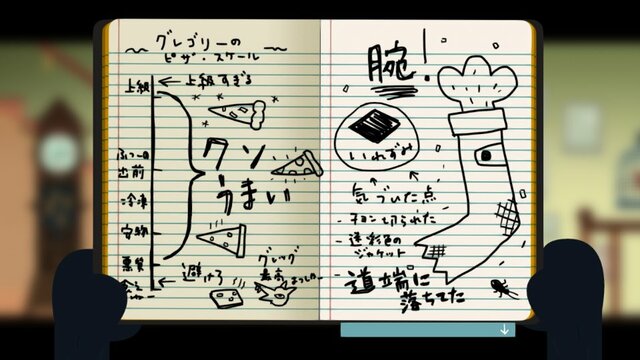 グレゴリーの
ピザ・スケール
上級
←上級すぎる
出前
冷凍
安物
悪質
クソ
うまい
←避けろ
グレッグ
腕!
いれずみ
気づいた点
- チョン切られた
- 迷彩色の
ジャケット
- 道端に
落ちてた